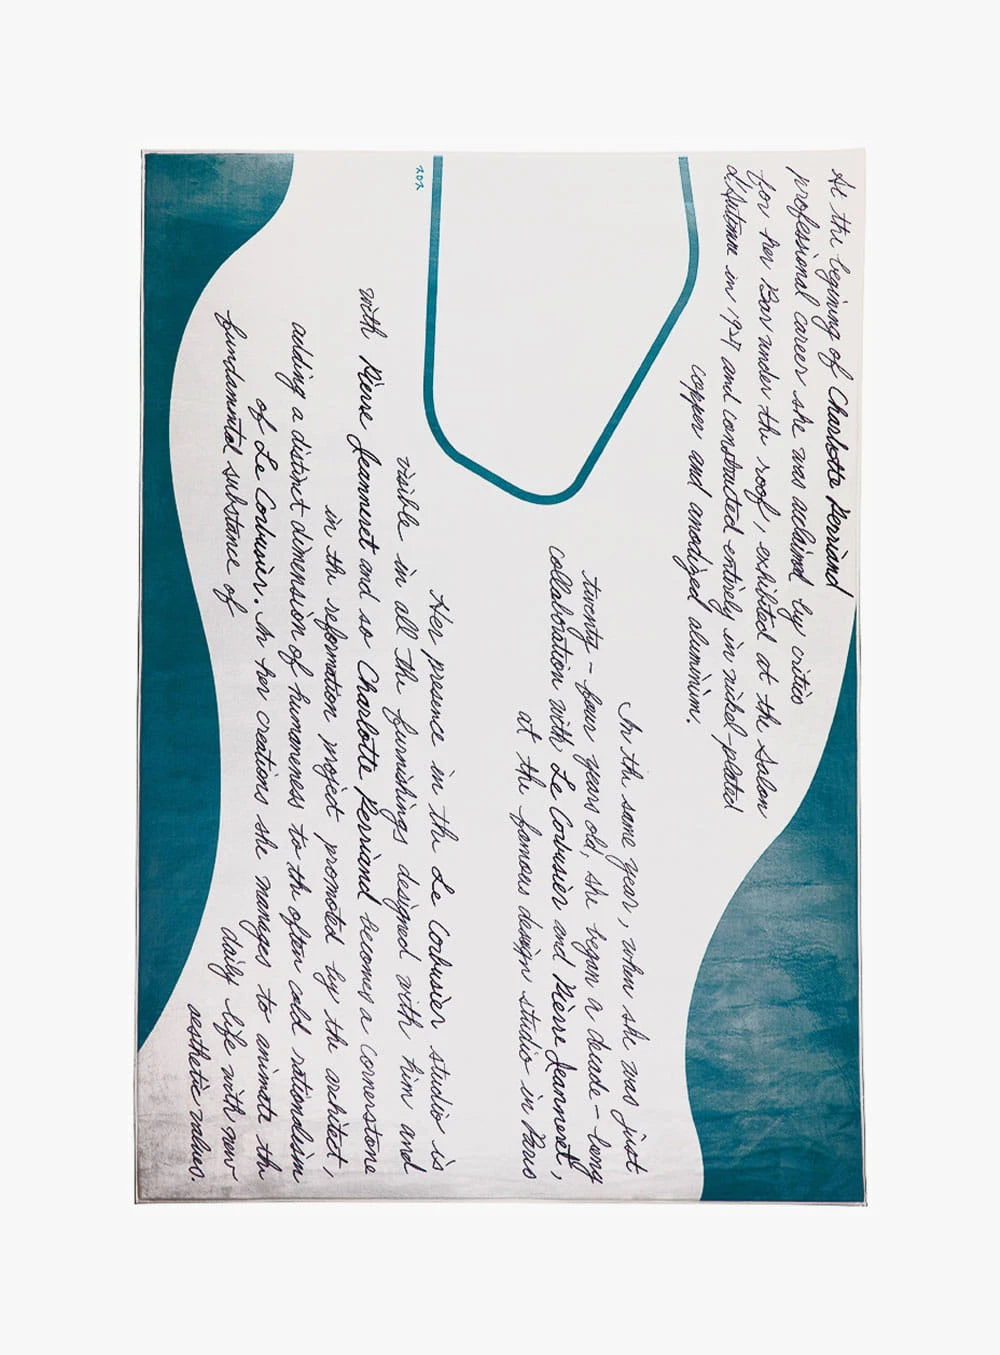 At the begining of Charlotte Perriand
professional career she was acclaimd by critics
for her Bar under the roof, exhibited at the Salon
d'Automne in 1927 and constructed entirely in nickel-plated
copper and anodized aluminium.
In the same year, when she was just
twenty-four years old, she began a decade-long
collaboration with Le Corbusier and Pierre Jeanneret,
at the famous design studio in Paris
202
Her presence in the Le Corbusier studio is
visible in all the furnishings designed with him and
with Pierre Jeanneret and so Charlotte Perriand becomes a cornerstone
in the reformation project promoted by the architect,
adding a distinct dimension of humaneness to the often cold rationalism
of Le Corbusier. In her creations she manages to animate the
fundamental substance of daily life with new
aesthetic values.